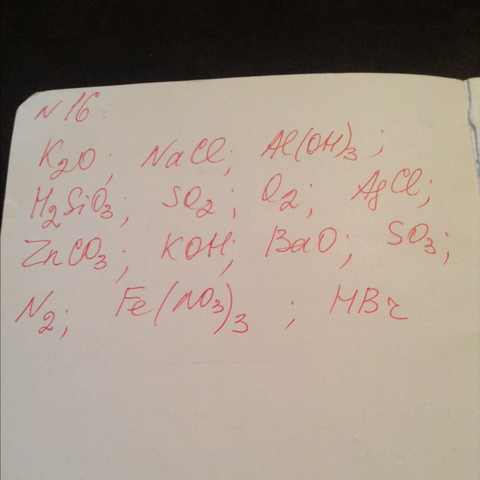 N 16
K2O; NaCl; Al(OH)3;
H2SiO3; SO2; O2; AgCl;
ZnCO3; KOH; BaO; SO3;
N2; Fe(NO3)3; HBr